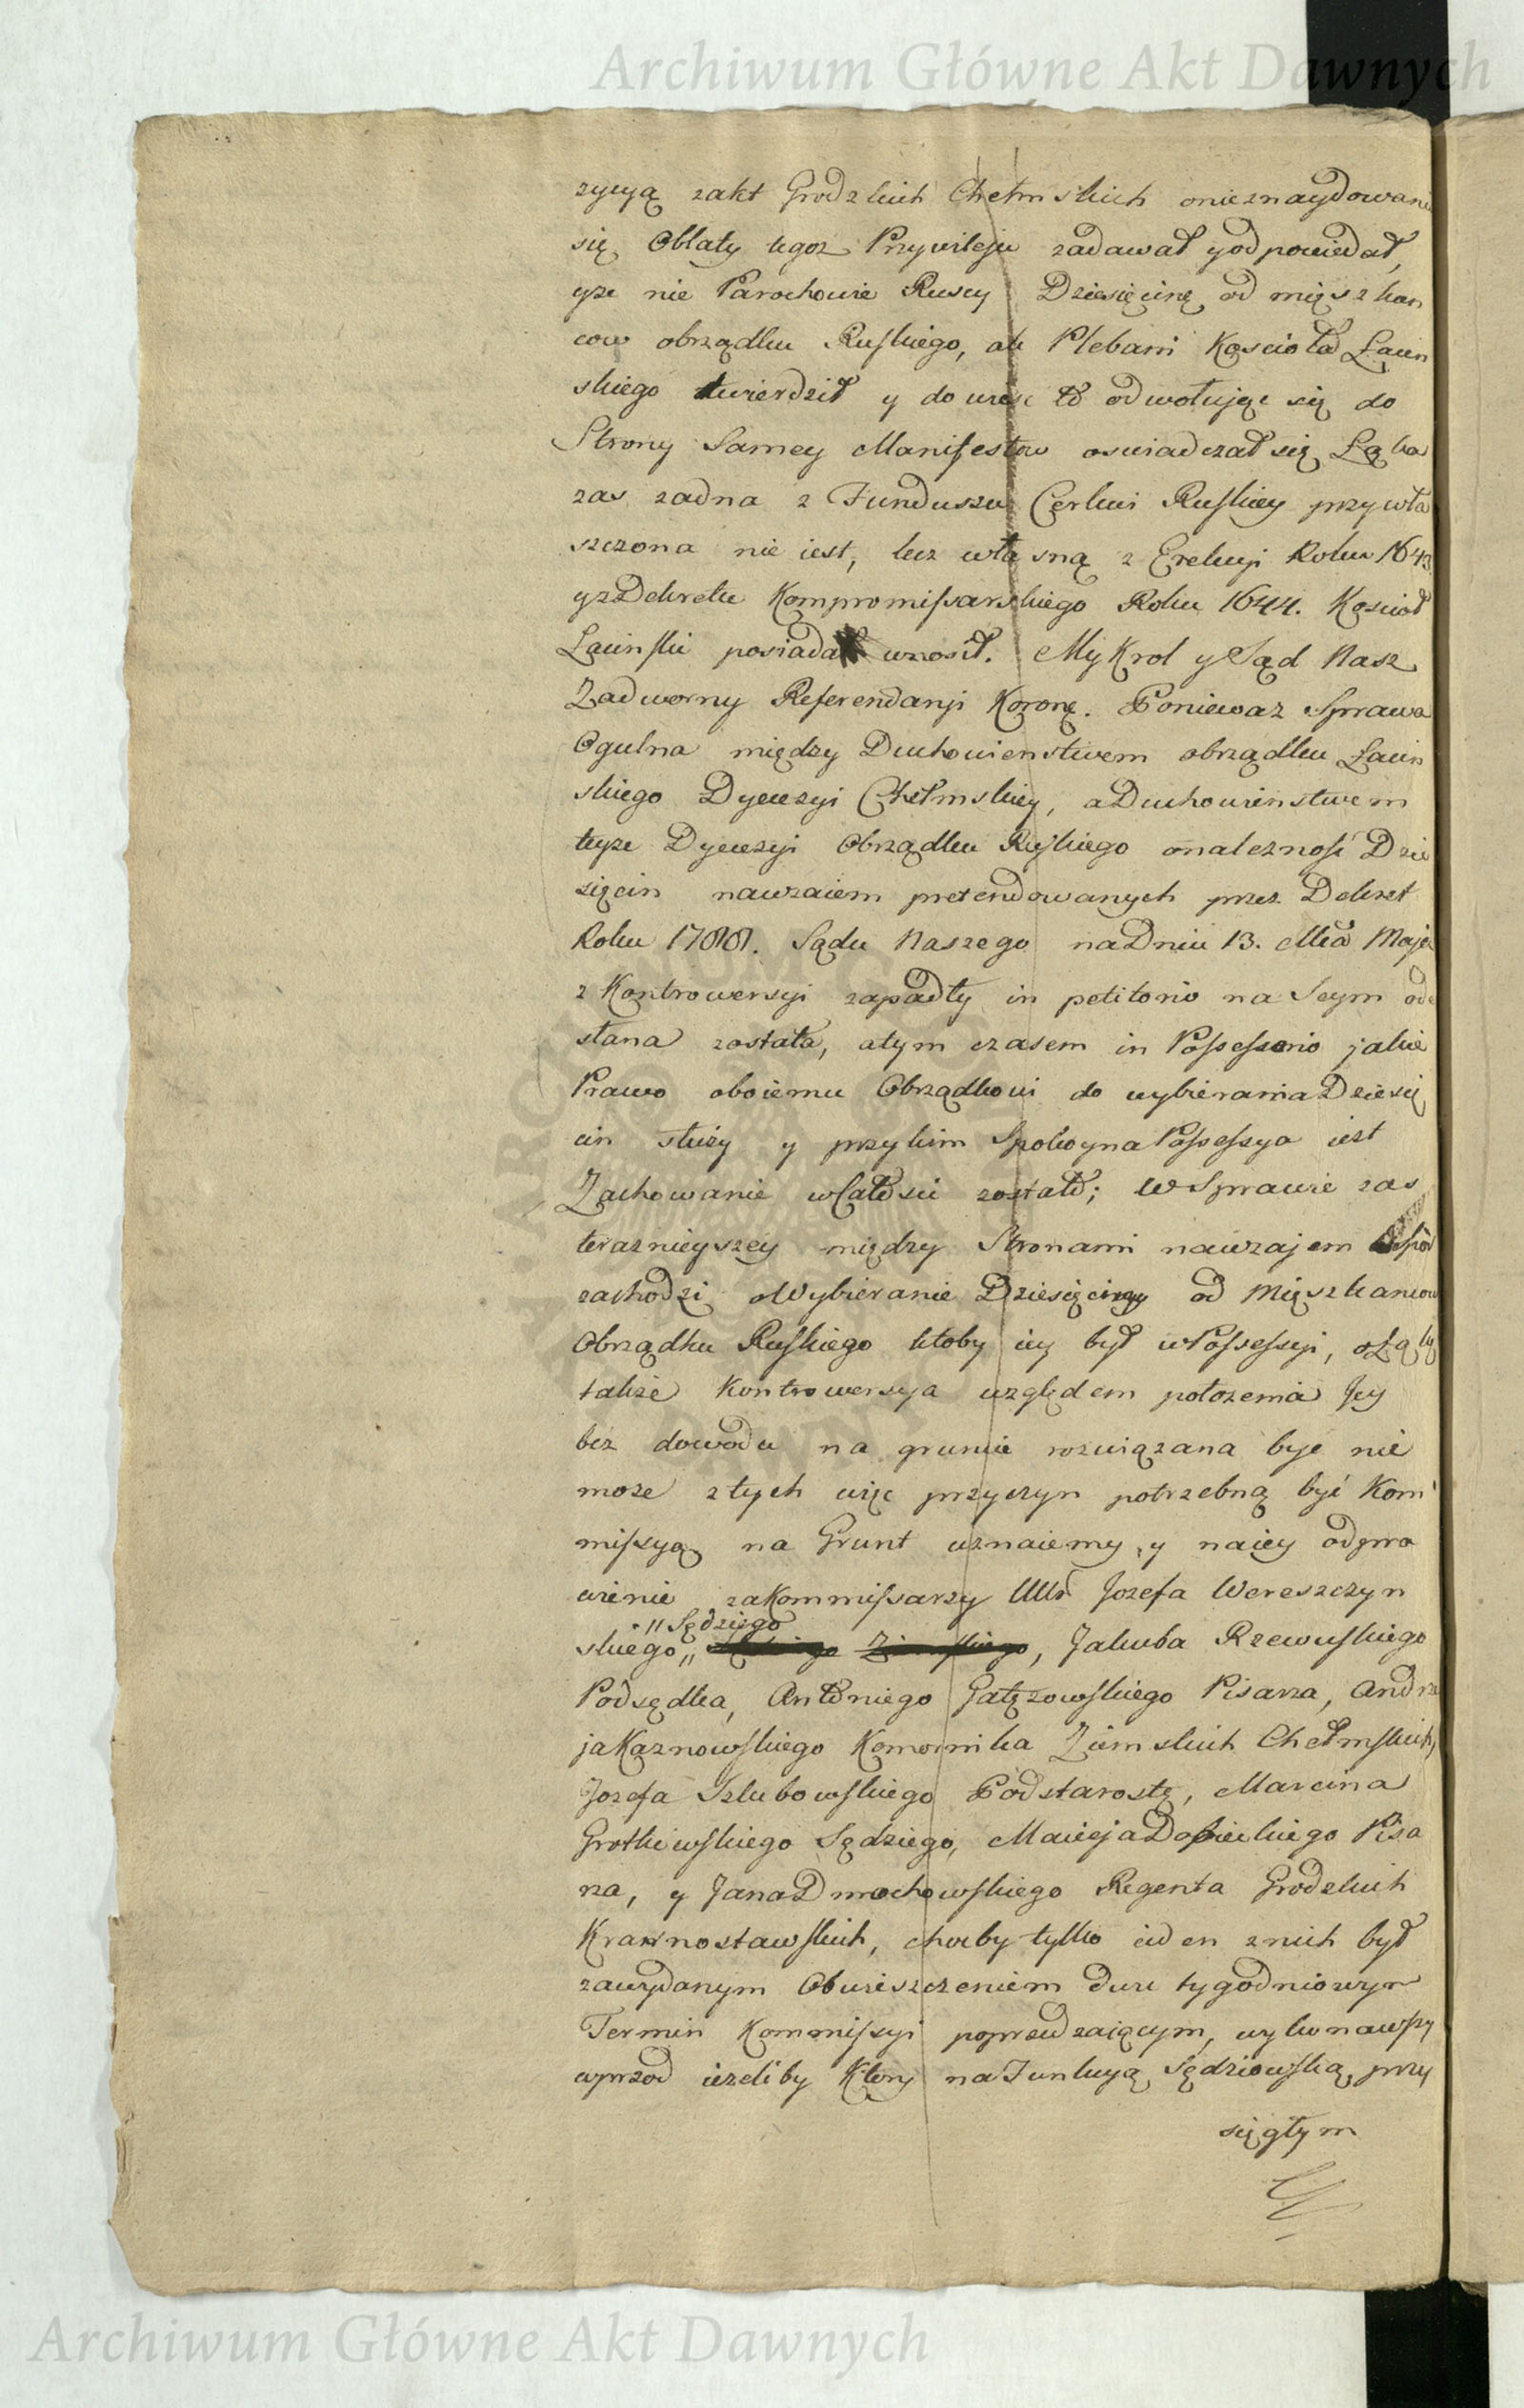 Archiwum Główne Akt Dawnych
zycyą zakt Grodzkich Chełmskich onieznaydowani
się Oblaty tegoz Przywileju zadawał y odpowiedał,
yże nie Parochowie Ruscy Dziesięcinę od mięszkan
cow obrządku Ruskiego, ale Plebani Koscioła Łacin
skiego twierdził y do wiesc to odwołując się do
Strony Samey Manifestow oswiadczał się Łąka
zas zadna z Funduszu Cerkwi Ruskiey przywła
szczona nie iest, lecz własną z Erekcyi Roku 1643
yzDekretu Kompromissarskiego Roku 1644. Koscioł
Łacinski posiada wnosił. My Krol y Sąd Nasz
Zadworny Referendaryi Koronę. Poniewaz Sprawa
Ogulna między Duchowienstwem obrządku Łacin
skiego Dyecezyi Chełmskiey, aDuchowienstwem
teyze Dyecezyi Obrządku Ruskiego onaleznosć Dzie
sięcin nawzaiem pretendowanych przez Dekret
Roku 1788. Sądu Naszego naDniu 13. Mca Maja
z Kontrowersyi zapadły in petitorio na Seym ode
słana została, atym czasem in Possessorio jakie
Prawo oboiemu Obrządkowi do wybieraniaDziesię
cin służy y przykim SpokoynaPossessya iest
Zachowanie wCałosci zostało; W Sprawie zas
teraznieyszey między Stronami nawzajem Spor
zachodzi oWybieranie Dziesięciny od Mięszkancow
Obrządku Ruskiego ktoby iey był wPossessyi, oŁąkę
także Kontrowersya względem położenia Jey
bez dowodu na gruncie rozwiązana byc nie
moze ztych więc przyczyn potrzebną być Kom
missyą na Grunt uznaiemy, y naiey odpra
wienie zaKommissarzy UUr Jozefa Wereszczyn
" Sędziego
skiego,, , Jakuba Rzewuskiego
Podsędka, Antoniego Gałęzowskiego Pisarza, Andrze
jaKaznowskiego Komornika Ziemskich Chełmskich,
Jozefa Izlubowskiego Podstarostę, Marcina
Grotkiewskiego Sędziego, Macieja Pisa
rza, y JanaDmochowskiego Regenta Grodzkich
Krasnostawskich, choćby tylko ieden znich był
zawydanym Obwieszczeniem dwu tygodniowym
Termin Kommissyi poprzedzaiącym, wykonawszy
wprzod iezeliby Ktory naFunkcyą Sędziowską przy
sięgłym
Archiwum Główne Akt Dawnych